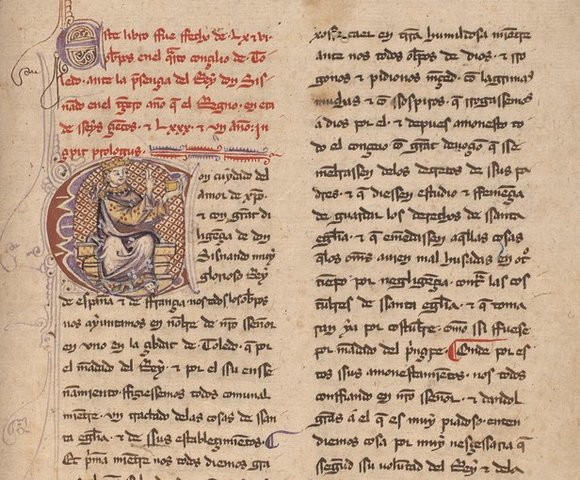 Este libro ffue ffecho de Lx⁊vi
obp̃os en el q̃rto conçilio de To
ledo. ante la p̃sençia del Rey don Sis
nado en el t̃çero año q̃ el Regno. en era
de sseys çientos. ⁊ Lxxx. ⁊ vn año. in
çipit prologus.
Con cuydado del
amor de xp̃o.
⁊ con gran di
ligençia de don
Sisnando muy
glorioso Rey
de espan̄a ⁊ de ffrançia nos todos los obp̃os
nos ayuntamos en nonbre de nr̃o Sen̄or
en vno en la çibdat de Toledo. q̃ por
el mãdado del Rey. ⁊ por el ssu ensse
ñamiento. ffiziessemos todos comunal
miente. vn tractado delas cosas de ssan
ta egl̃ia. ⁊ de ssus establesçimientos.
Et p̃ma miente nos todos diemos gr̃a
caer en tr̃a humildosa miente
ante nos todos obp̃os de dios. ⁊
⁊ pidionos mçed. cõ lagrimas
muchas ⁊ cõ ssospiros. q̃ rrogassemos
a dios por el. ⁊ depues amonesto to
do el conçeio cõ grãt deuoçiõ q̃ sse
menbrassen delos decretos de ssus pa
dres. ⁊ q̃ diessen estudio ⁊ ffemençia
de guardar los derechos de ssanta
egl̃ia. ⁊ q̃ emẽdassen aq̃llas cosas
q̃ los om̃s auien mal husadas en ot̃
tiẽpo por negligençia. contra las cos
tũbres de ssanta egl̃ia. ⁊ q̃ toma
ran ya por costũbre. como ssi ffuesse
por mãdado del prĩçipe. Onde por es
tos ssus amonestamiẽtos. nos todos
confiando en nr̃o ssen̄or. ⁊ dandol
gr̃as a el q̃ es muy piadoso. enten
diemos cosa por muy nesçessaria q̃
segũd ssu voluntad del Rey ⁊ dela